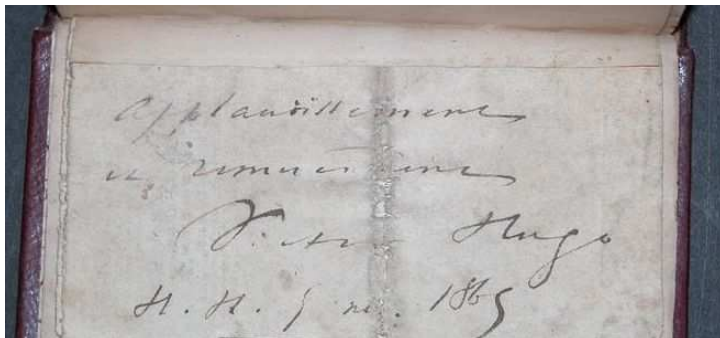 applaudissements
et remerciements
Victor Hugo
H. H. 5 nov. 1865